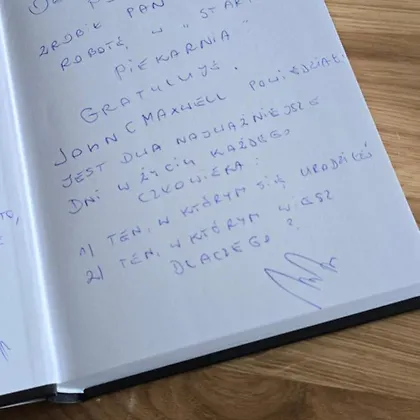 ZROBIŁ PAN
ROBOTĘ, W "START
PIEKARNIA"
GRATULUJĘ.
JOHN C MAXWELL POWIEDZIAŁ:
JEST DWA NAJWAŻNIEJSZE
DNI W ŻYCIU KAŻDEGO
CZŁOWIEKA:
1) TEN, W KTÓRYM SIĘ URODZIŁEŚ
2) TEN, W KTÓRYM WIESZ
DLACZEGO?